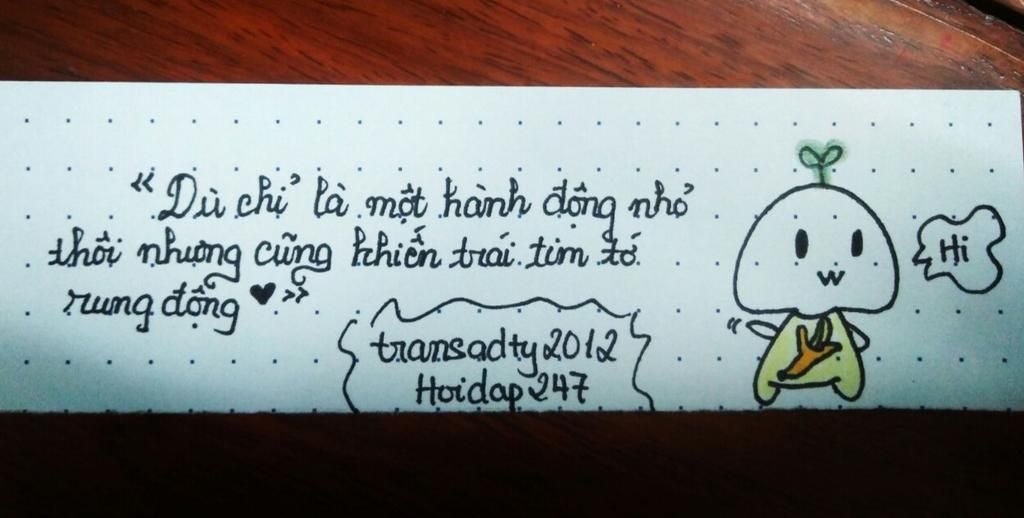 “Dù chỉ là một hành động nhỏ
thôi nhưng cũng khiến trái tim tớ
rung động ♥”
transadty2012
Hoidap247
Hi